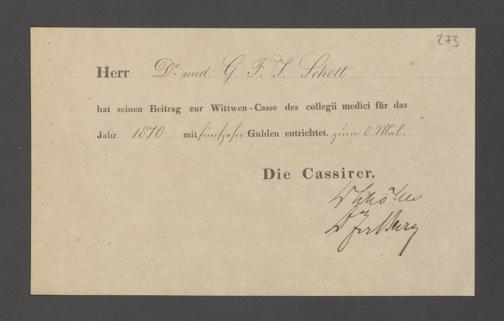 273
Herr Dr. med. G. F. J. Schott
hat seinen Beitrag zur Wittwen-Casse des collegii medici für das
Jahr 1870 mit fünfzehn Gulden entrichtet. zum 8. Mal.
Die Cassirer.